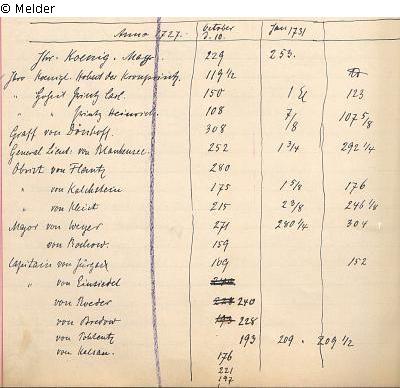 © Melder
Anno 1727. October d. 10. Jan 1731
Ihr. Koenig. May. 229 253.
Ihro Koenigl. Hoheit der Kronprintz 119 1/2
" Hoheit Printz Carl. 150 123
" " Printz Heinrich. 108 7/8 107 5/8
Graff von Dönhoff. 308
General Lieut: von Blankensee. 252 1 3/4 292 1/4
Obrist von Flantz 280
" von Kalckstein 175 1 5/8 176
" von Kleist 215 2 3/8 246 1/8
Major von Weyer 271 280 1/4 304
von Rochow. 159
Capitain von Jürgass 109 152
" von Einsiedel
von Roeder 240
von Bredow 193 228
von Pohlentz 193 209 209 1/2
von Kalsau. 176
221
197